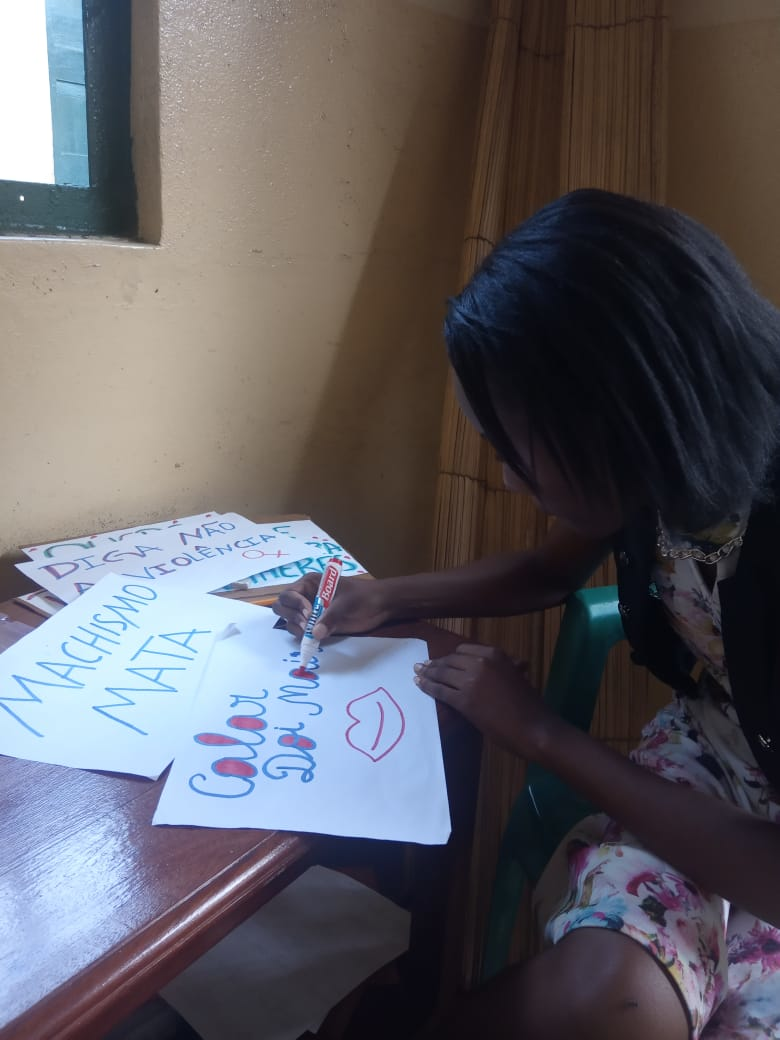 DIGA NÃO
A VIOLÊNCIA
MACHISMO
MATA
Calar
Doi Mais
Board